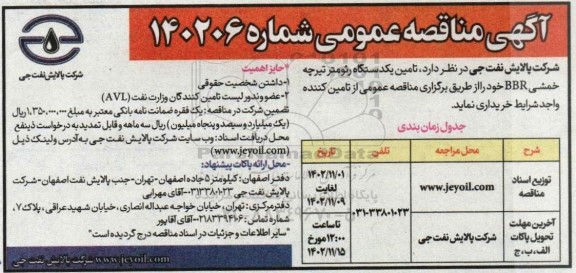 آگهی مناقصه عمومی شماره ۱۴۰۲۰۶
شرکت پالایش نفت جی
شرکت پالایش نفت جی در نظر دارد، تامین یکدستگاه رئومتر تیرچه
خمشی BBR خود را از طریق برگزاری مناقصه عمومی از تامین کننده
واجد شرایط خریداری نماید.
جدول زمان بندی
شرح
محل مراجعه
تلفن
تاریخ
توزیع اسناد مناقصه
www.jeyoil.com
۰۳۱-۳۳۸۰۱۰۲۳
۱۴۰۲/۱۱/۰۱
لغایت
۱۴۰۲/۱۱/۰۹
آخرین مهلت
تحویل پاکات
الف، ب، ج
شرکت پالایش نفت جی
تا ساعت
۱۲:۰۰ مورخ
۱۴۰۲/۱۱/۱۵
*حایز اهمیت
۱-داشتن شخصیت حقوقی
۲-عضو وندور لیست تامین کنندگان وزارت نفت (AVL)
تضمین شرکت در مناقصه: یک فقره ضمانت نامه بانکی معتبر به مبلغ ۱،۳۵۰،۰۰۰،۰۰۰ ریال
(یک میلیارد و سیصد و پنجاه میلیون) ریال سه ماهه و قابل تمدید به درخواست ذینفع
محل دریافت اسناد: وب سایت شرکت پالایش نفت جی به آدرس و لینک ذیل
(www.jeyoil.com)
-محل ارائه پاکات پیشنهاد:
دفتر اصفهان: کیلومتر ۵ جاده اصفهان- تهران- جنب پالایش نفت اصفهان- شرکت
پالایش نفت جی ۰۳۱۳۳۸۰۱۰۲۳- آقای مهرابی
دفتر مرکزی: تهران، خیابان خواجه عبداله انصاری، خیابان شهید عراقی، پلاک ۷،
شماره تماس: ۰۲۱۸۳۳۹۴۱۶۶- آقای آقاپور
"سایر اطلاعات و جزئیات در اسناد مناقصه درج گردیده است"
www.jeyoil.com شرکت پالایش نفت جی